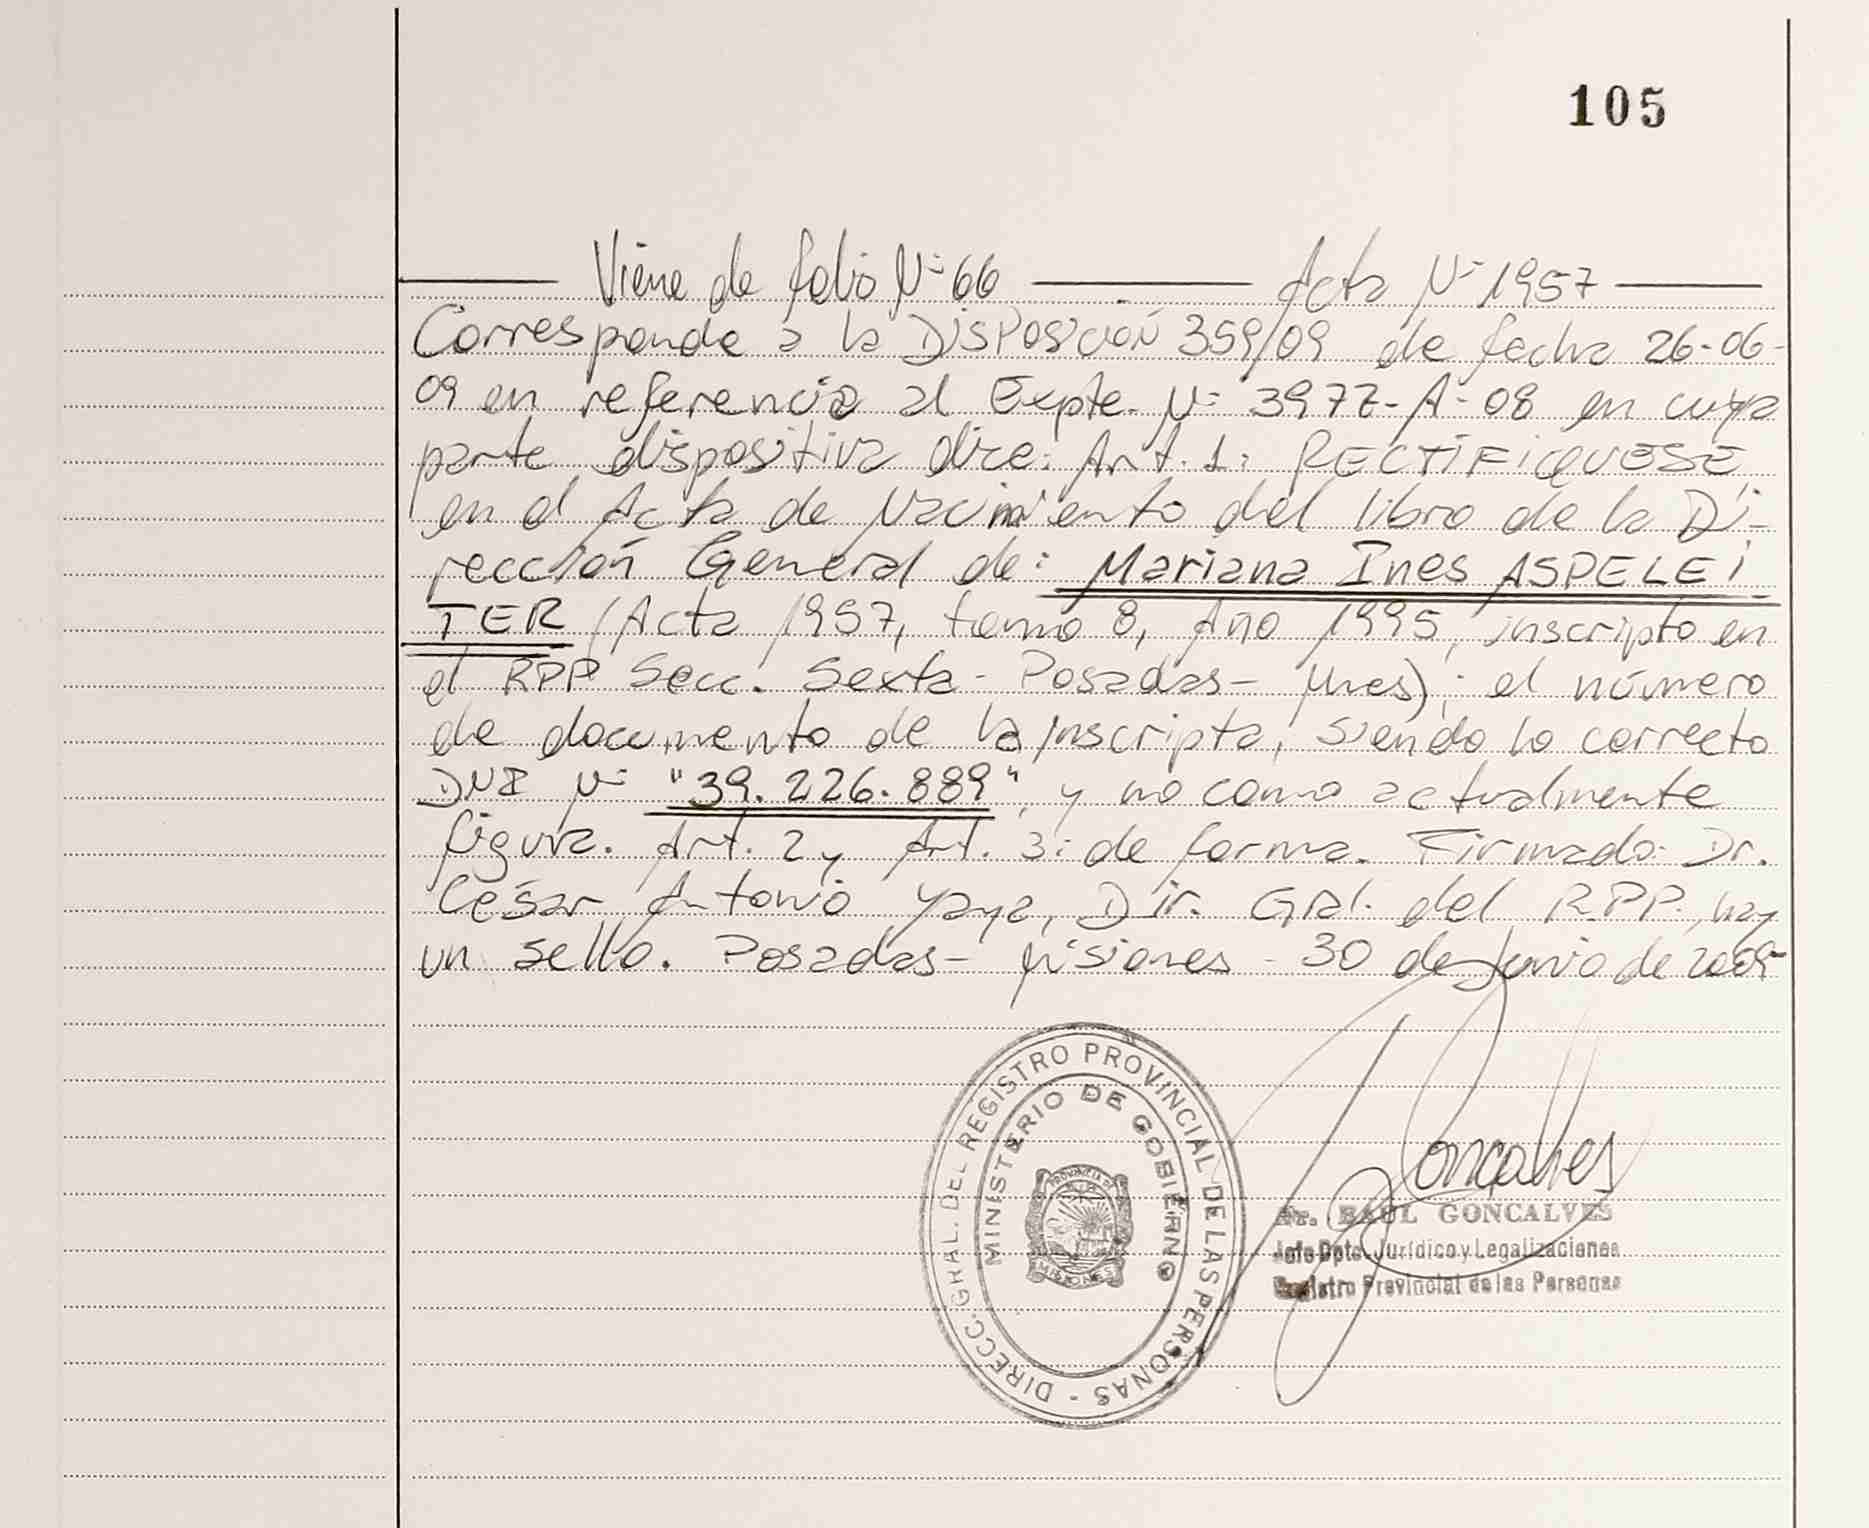 105
Viene de folio Nº 66 Acta Nº 1957
Corresponde a la DISPOSICIÓN 359/09 de fecha 26-06-
09 en referencia al Expte. Nº 3977-A-08 en cuya
parte dispositiva dice: Art. 1: RECTIFIQUESE
en el Acta de Nacimiento del libro de la Di-
rección General de: Mariana Ines ASPELEI
TER (Acta 1957, tomo 8, Año 1995, inscripto en
el RPP Secc. Sexta - Posadas - Mnes); el número
de documento de la inscripta, siendo lo correcto
DNI Nº "39.226.889", y no como actualmente
figura. Art. 2 y Art. 3: de forma. Firmado: Dr.
César Antonio Yaya, Dir. Gral. del R.P.P., hay
un sello. Posadas - Misiones - 30 de Junio de 2009-
DIRECC. GRAL. DEL REGISTRO PROVINCIAL DE LAS PERSONAS -
MINISTERIO DE GOBIERNO
PROVINCIA DE
MISIONES
Goncalves
Dr. RAUL GONCALVES
Jefe Dpto. Jurídico y Legalizaciones
Registro Provincial de las Personas